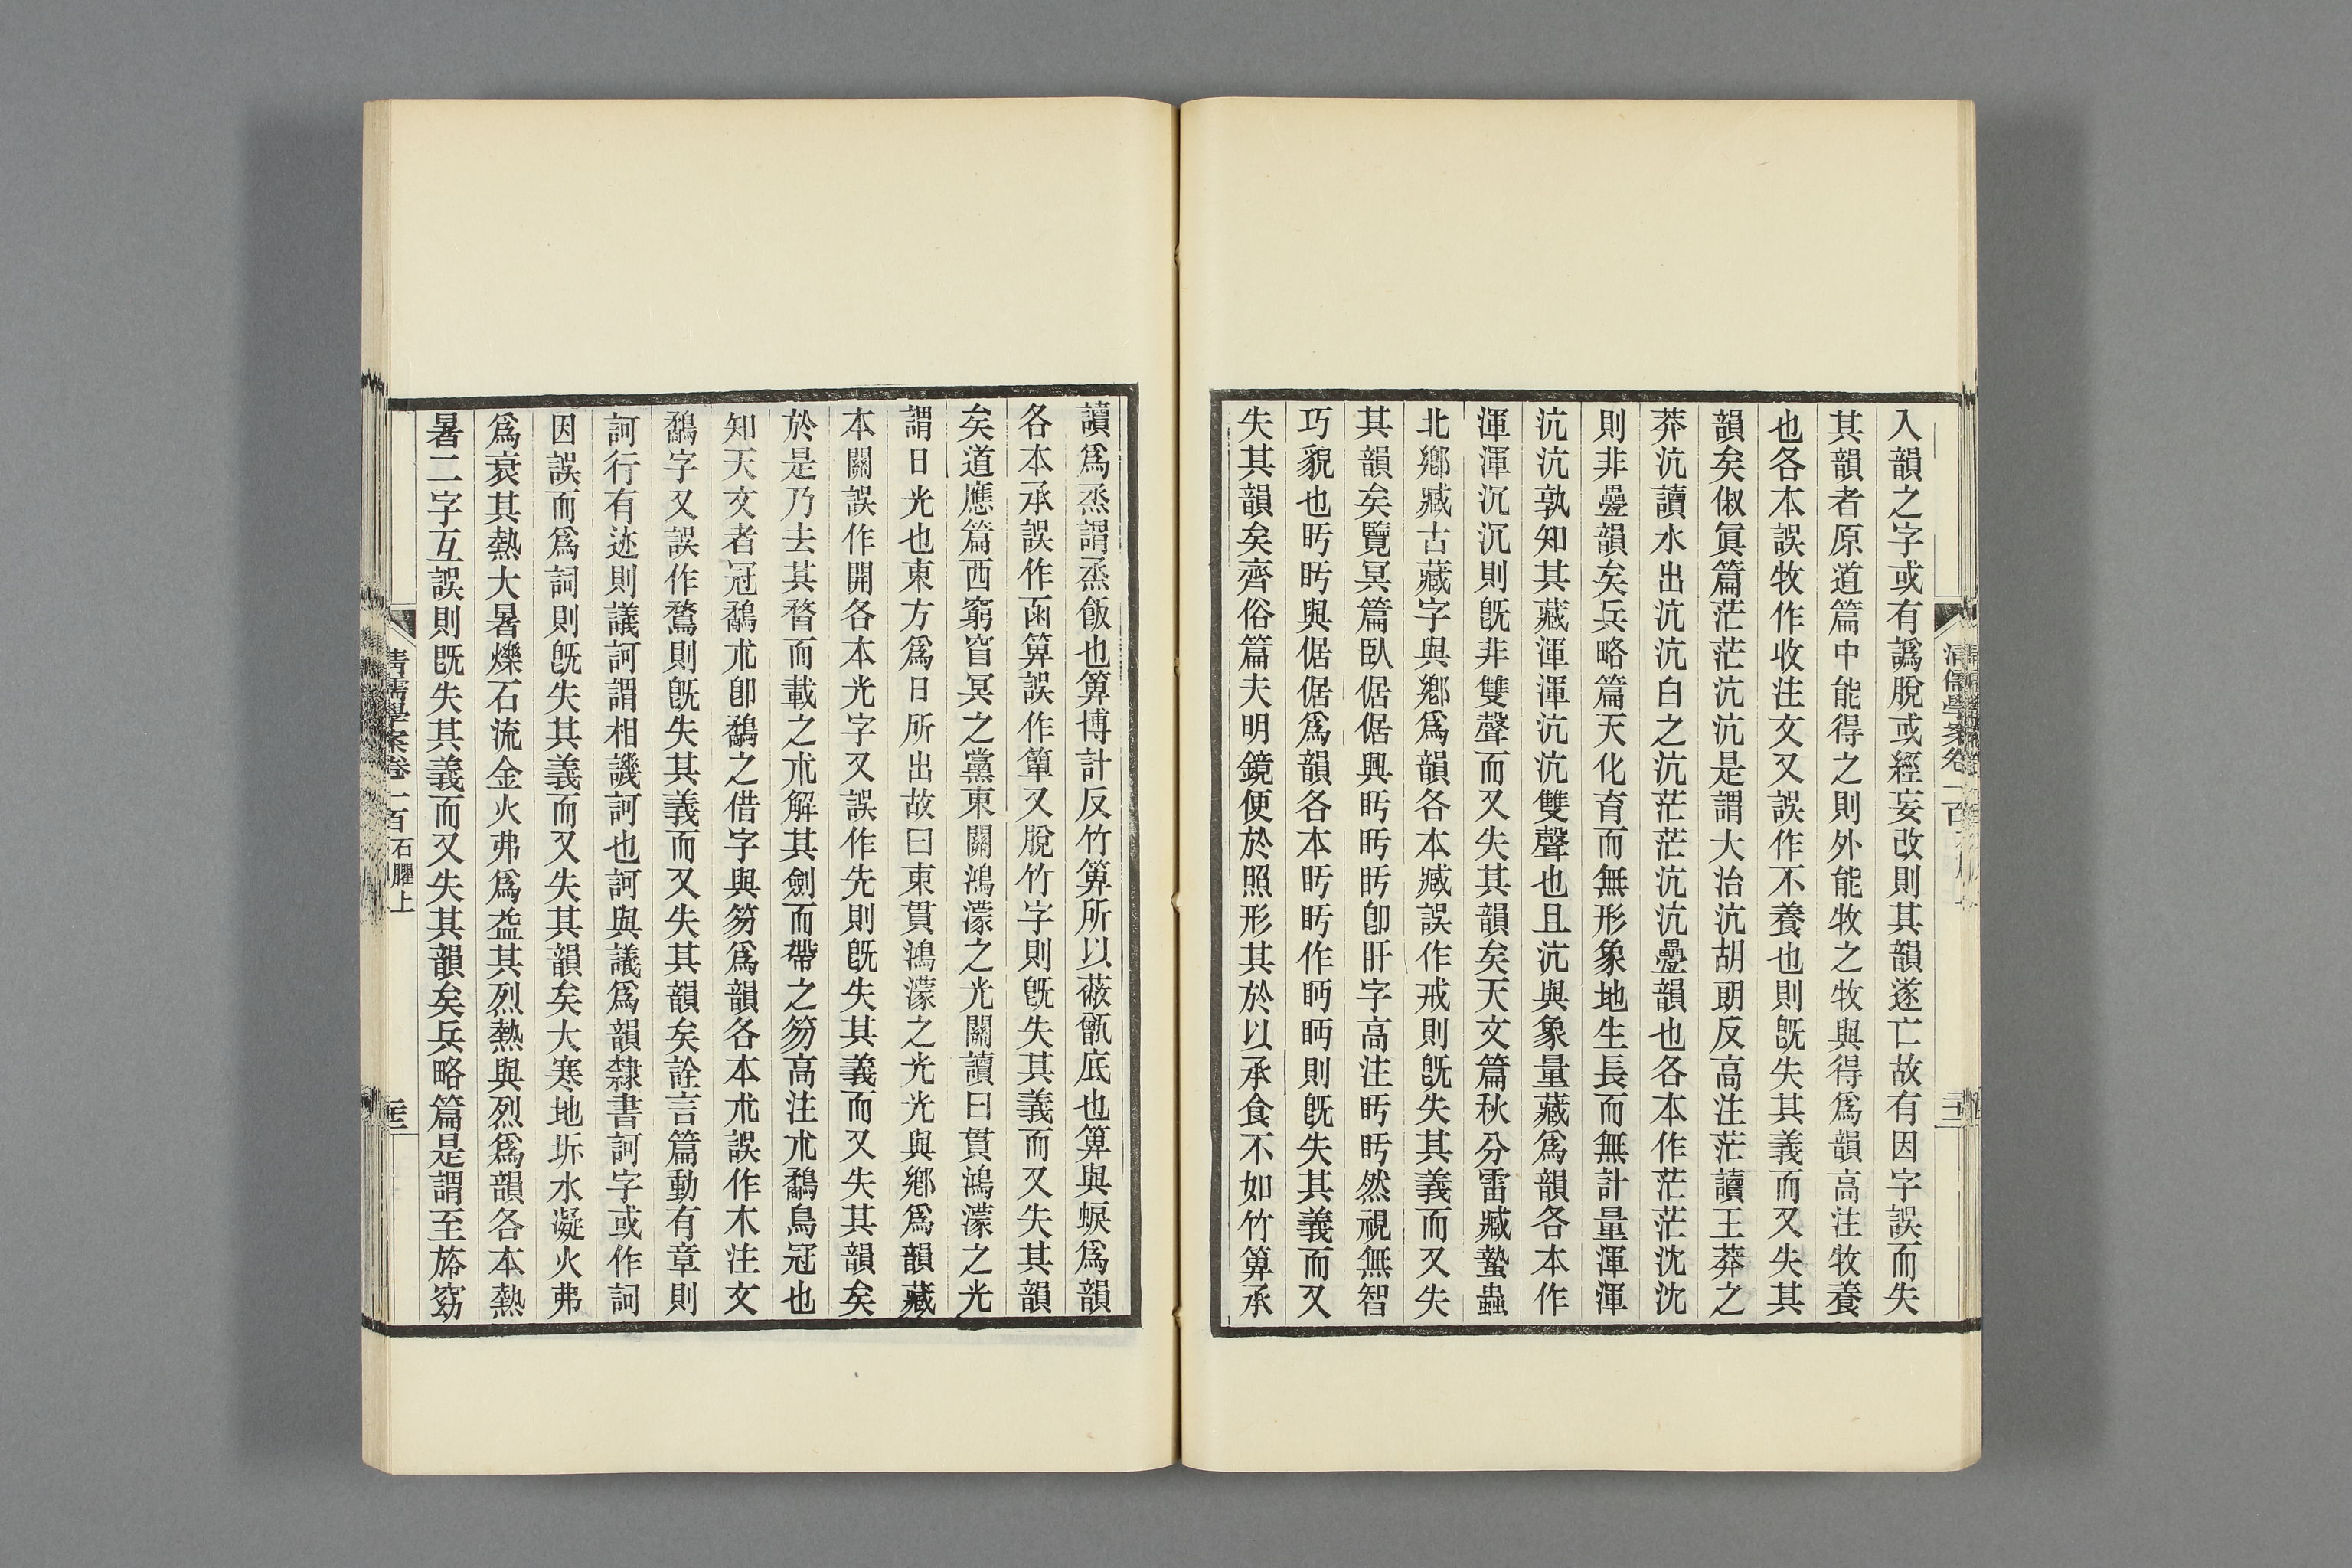 入韻之字或有譌脫或經妄改則其韻遂亡故有因字誤而失
其韻者原道篇中能得之則外能牧之牧與得爲韻高注牧養
也各本誤牧作收注文又誤作不養也則旣失其義而又失其
韻矣俶眞篇茫茫沆沆是謂大治沆胡朗反高注茫讀王莽之
莽沆讀水出沆沆白之沆茫茫沆沆疊韻也各本作茫茫沈沈
則非疊韻矣兵略篇天化育而無形象地生長而無計量渾渾
沆沆孰知其藏渾渾沆沆雙聲也且沆與象量藏爲韻各本作
渾渾沉沉則旣非雙聲而又失其韻矣天文篇秋分雷臧蟄蟲
北鄉臧古藏字與鄉爲韻各本臧誤作戒則旣失其義而又失
其韻矣覽冥篇臥倨倨興眄眄眄卽盱字高注眄眄然視無智
巧貌也眄眄與倨倨爲韻各本眄眄作眄眄則旣失其義而又
失其韻矣齊俗篇夫明鏡便於照形其於以承食不如竹箅承
讀爲烝謂烝飯也箅博計反竹箅所以蔽甑底也箅與蜧爲韻
各本承誤作函箅誤作簞又脫竹字則旣失其義而又失其韻
矣道應篇西窮窅冥之黨東關鴻濛之光關讀曰貫鴻濛之光
謂日光也東方爲日所出故曰東貫鴻濛之光光與鄉爲韻藏
本關誤作開各本光字又誤作先則旣失其義而又失其韻矣
於是乃去其瞀而載之朮解其劍而帶之笏高注朮鷸鳥冠也
知天文者冠鷸朮卽鷸之借字與笏爲韻各本朮誤作木注文
鷸字又誤作鶩則旣失其義而又失其韻矣詮言篇動有章則
訶行有迹則議訶謂相譏訶也訶與議爲韻隸書訶字或作詞
因誤而爲詞則旣失其義而又失其韻矣大寒地坼水凝火弗
爲衰其熱大暑爍石流金火弗爲益其烈熱與烈爲韻各本熱
暑二字互誤則旣失其義而又失其韻矣兵略篇是謂至旍窈
清儒學案卷一百 石臞上